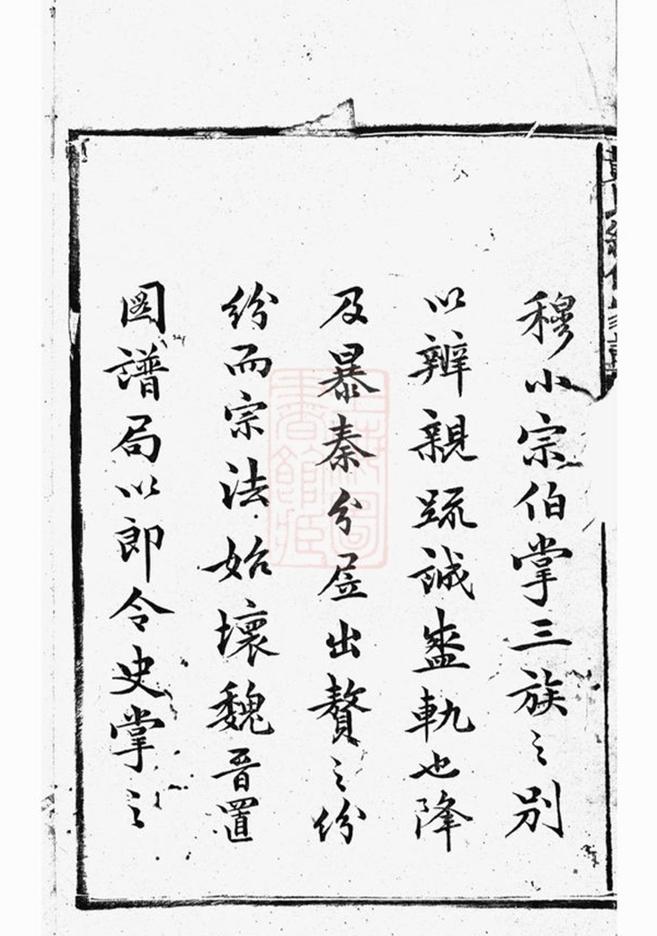 穆小宗伯掌三族之別
以辨親疏誠盛軌也降
及暴秦分居出贅之份
紛而宗法始壞魏晉置
圖譜局以郎令史掌之